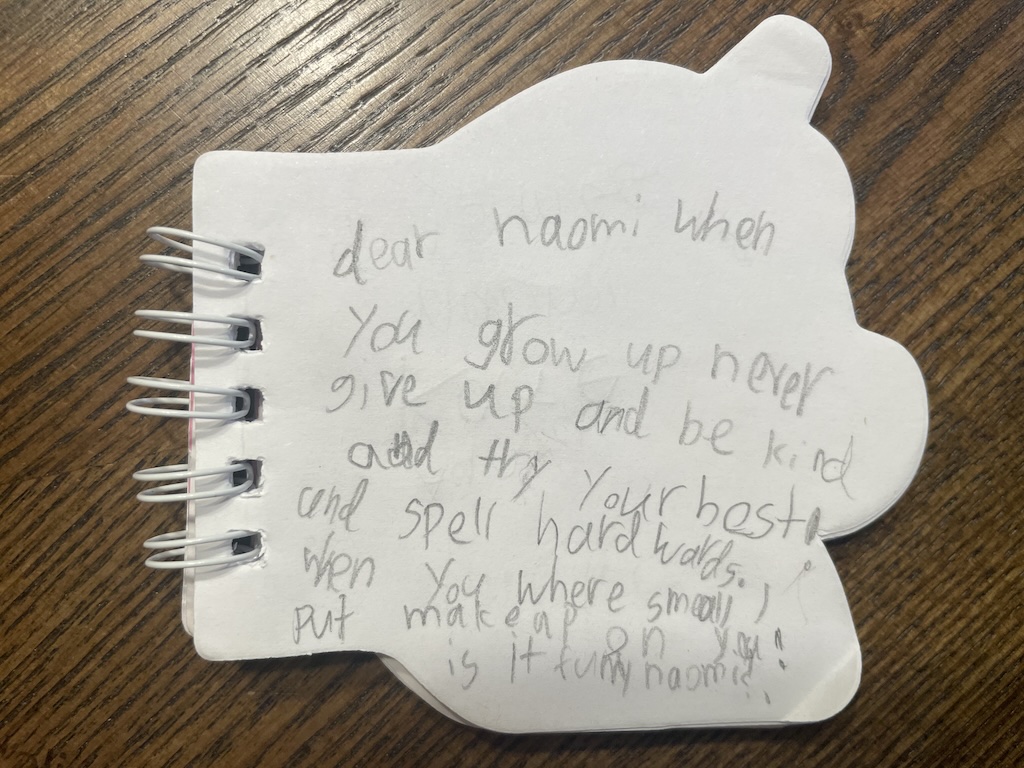 dear naomi when
you grow up never
give up and be kind
and try your best
and spell hard words.
when you where small I
put makeup on you!
is it funny naomi?